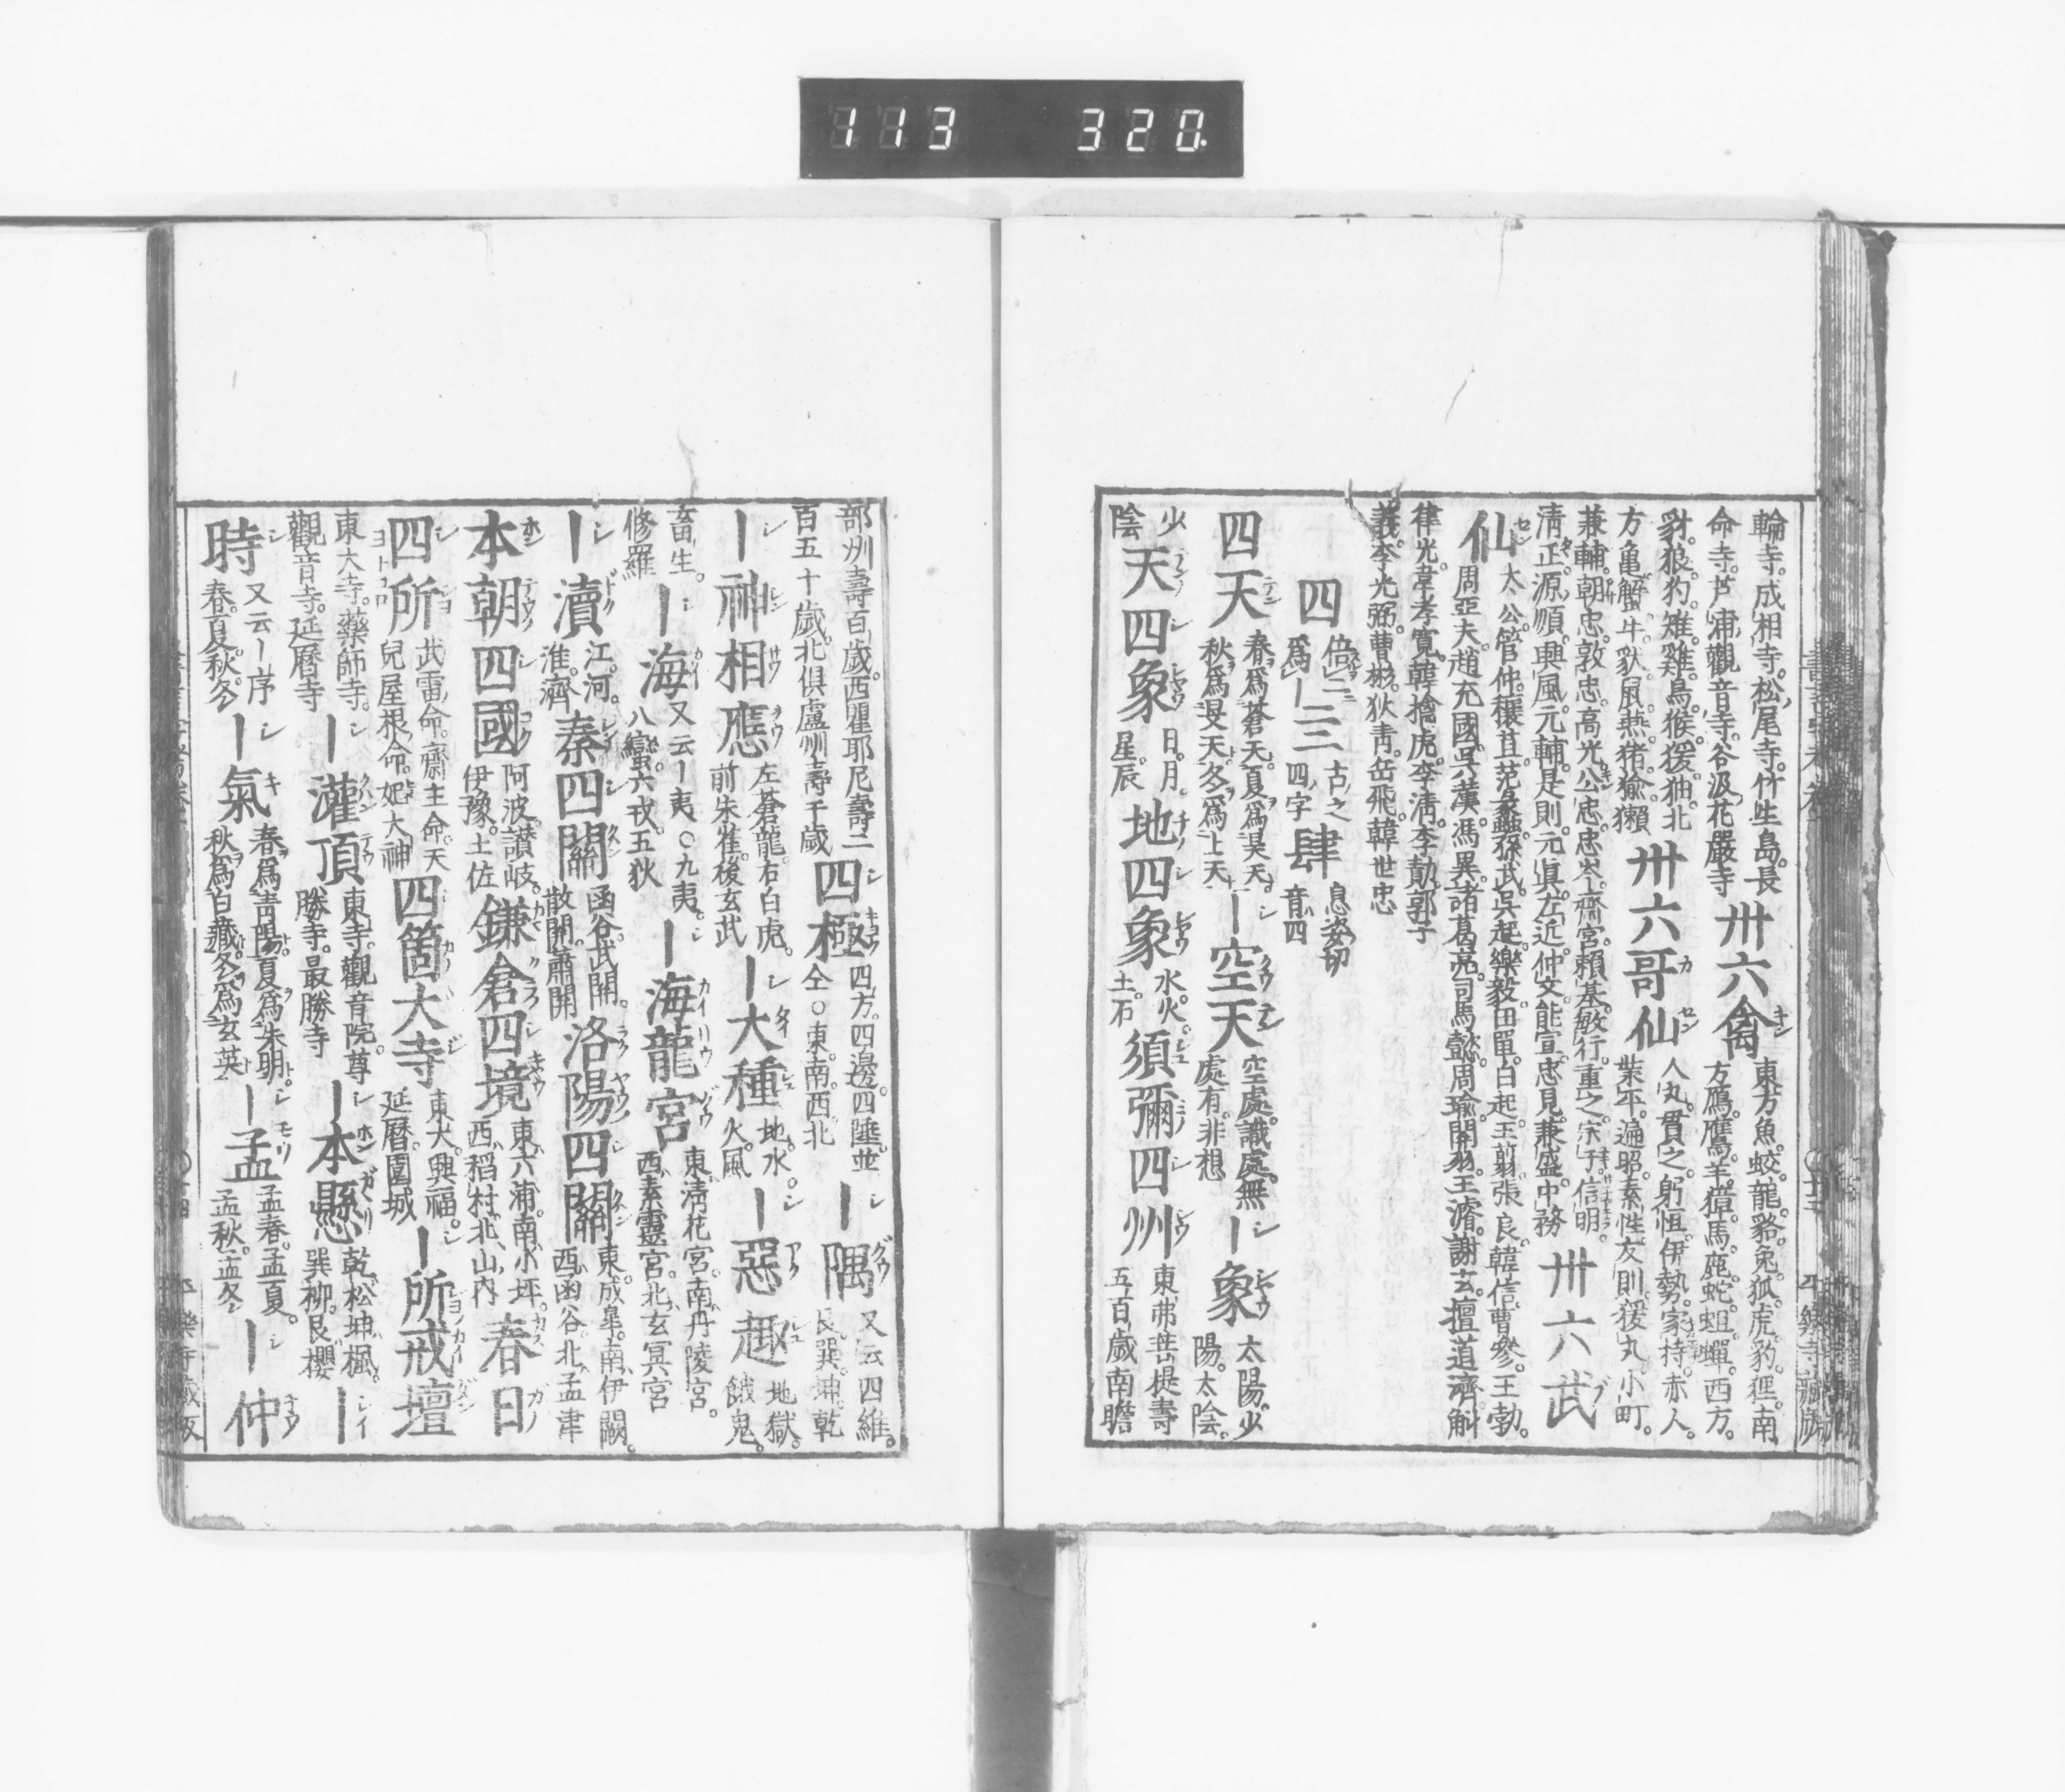 113 320
輪寺。成相寺。松尾寺。竹生島。長
命寺。芦浦觀音寺。谷汲花嚴寺
卅六禽
東方魚。蛟。龍。貉。兔。狐。虎。豹。狸。南
方鴈。鷹。羊。獐。馬。鹿。蛇。蛆。蟬。西方。
豺。狼。狗。雉。雞。烏。猴。猨。㹨。北
方亀。蟹。牛。鼠。燕。猪。㺄。獺
卅六哥仙
人丸。貫之。躬恒。伊勢。家持。赤人。
業平。遍昭。素性。友則。猨丸。小町。
兼輔。朝忠。敦忠。高光。公忠。忠岑。齋宮。頼基。敏行。重之。宗于。信明。
清正。源順。興風。元輔。是則。元眞。左近。仲文。能宣。忠見。兼盛。中務
卅六武
仙
太公。管仲。穰苴。范蠡。孫武。吳起。樂毅。田單。白起。王翦。張良。韓信。曹參。王勃。
周亞夫。趙充國。吳漢。馮異。諸葛亮。司馬懿。周瑜。關羽。王濬。謝玄。檀道濟。斛
律光。韋孝寬。韓擒虎。李淸。李勣。郭子
義。李光弼。曹彬。狄靑。岳飛。韓世忠
四
倍二
爲｜
亖
古之
四字
肆
息姿切
音四
四天
春爲蒼天。夏爲昊天。
秋爲旻天。冬爲上天
｜空天
空處。識處。無
處有。非想
｜象
太陽。少
陽。太陰。
少
陰
天四象
日。月。
星。辰
地四象
水。火。
土。石
須彌四州
東弗菩提壽
五百歲南瞻
部州壽百歲。西瞿耶尼壽二
百五十歲。北俱盧州壽千歲
四極
四方。四邊。四陲並
仝○東。南。西。北
｜隅
又云四維。
艮。巽。坤。乾
｜神相應
左蒼龍。右白虎。
前朱雀。後玄武
｜大種
地。水。
火。風
｜惡趣
地獄。
餓鬼。
畜生。
修羅
｜海
又云｜夷○九夷。
八蠻。六戎。五狄
｜海龍宮
東淸花宮。南丹陵宮。
西素靈宮。北玄冥宮
｜瀆
江。河。
淮。濟
秦四關
函谷。武關。
散關。蕭關
洛陽四關
東成皐。南伊闕。
西函谷。北孟津
本朝四國
阿波。讃岐。
伊豫。土佐
鎌倉四境
東六浦。南小坪。
西稻村。北山内
春日
四所
武雷命。齋主命。天
兒屋根命。妃大神
四箇大寺
東大。興福。
延曆。園城
｜所戒壇
東大寺。藥師寺。
觀音寺。延曆寺
｜灌頂
東寺。觀音院。尊
勝寺。最勝寺
｜本懸
乾松。坤楓。
巽柳。艮櫻
｜
時
又云｜序
春。夏。秋。冬
｜氣
春爲靑陽。夏爲朱明。
秋爲白藏。冬爲玄英
｜孟
孟春。孟夏。
孟秋。孟冬
｜仲